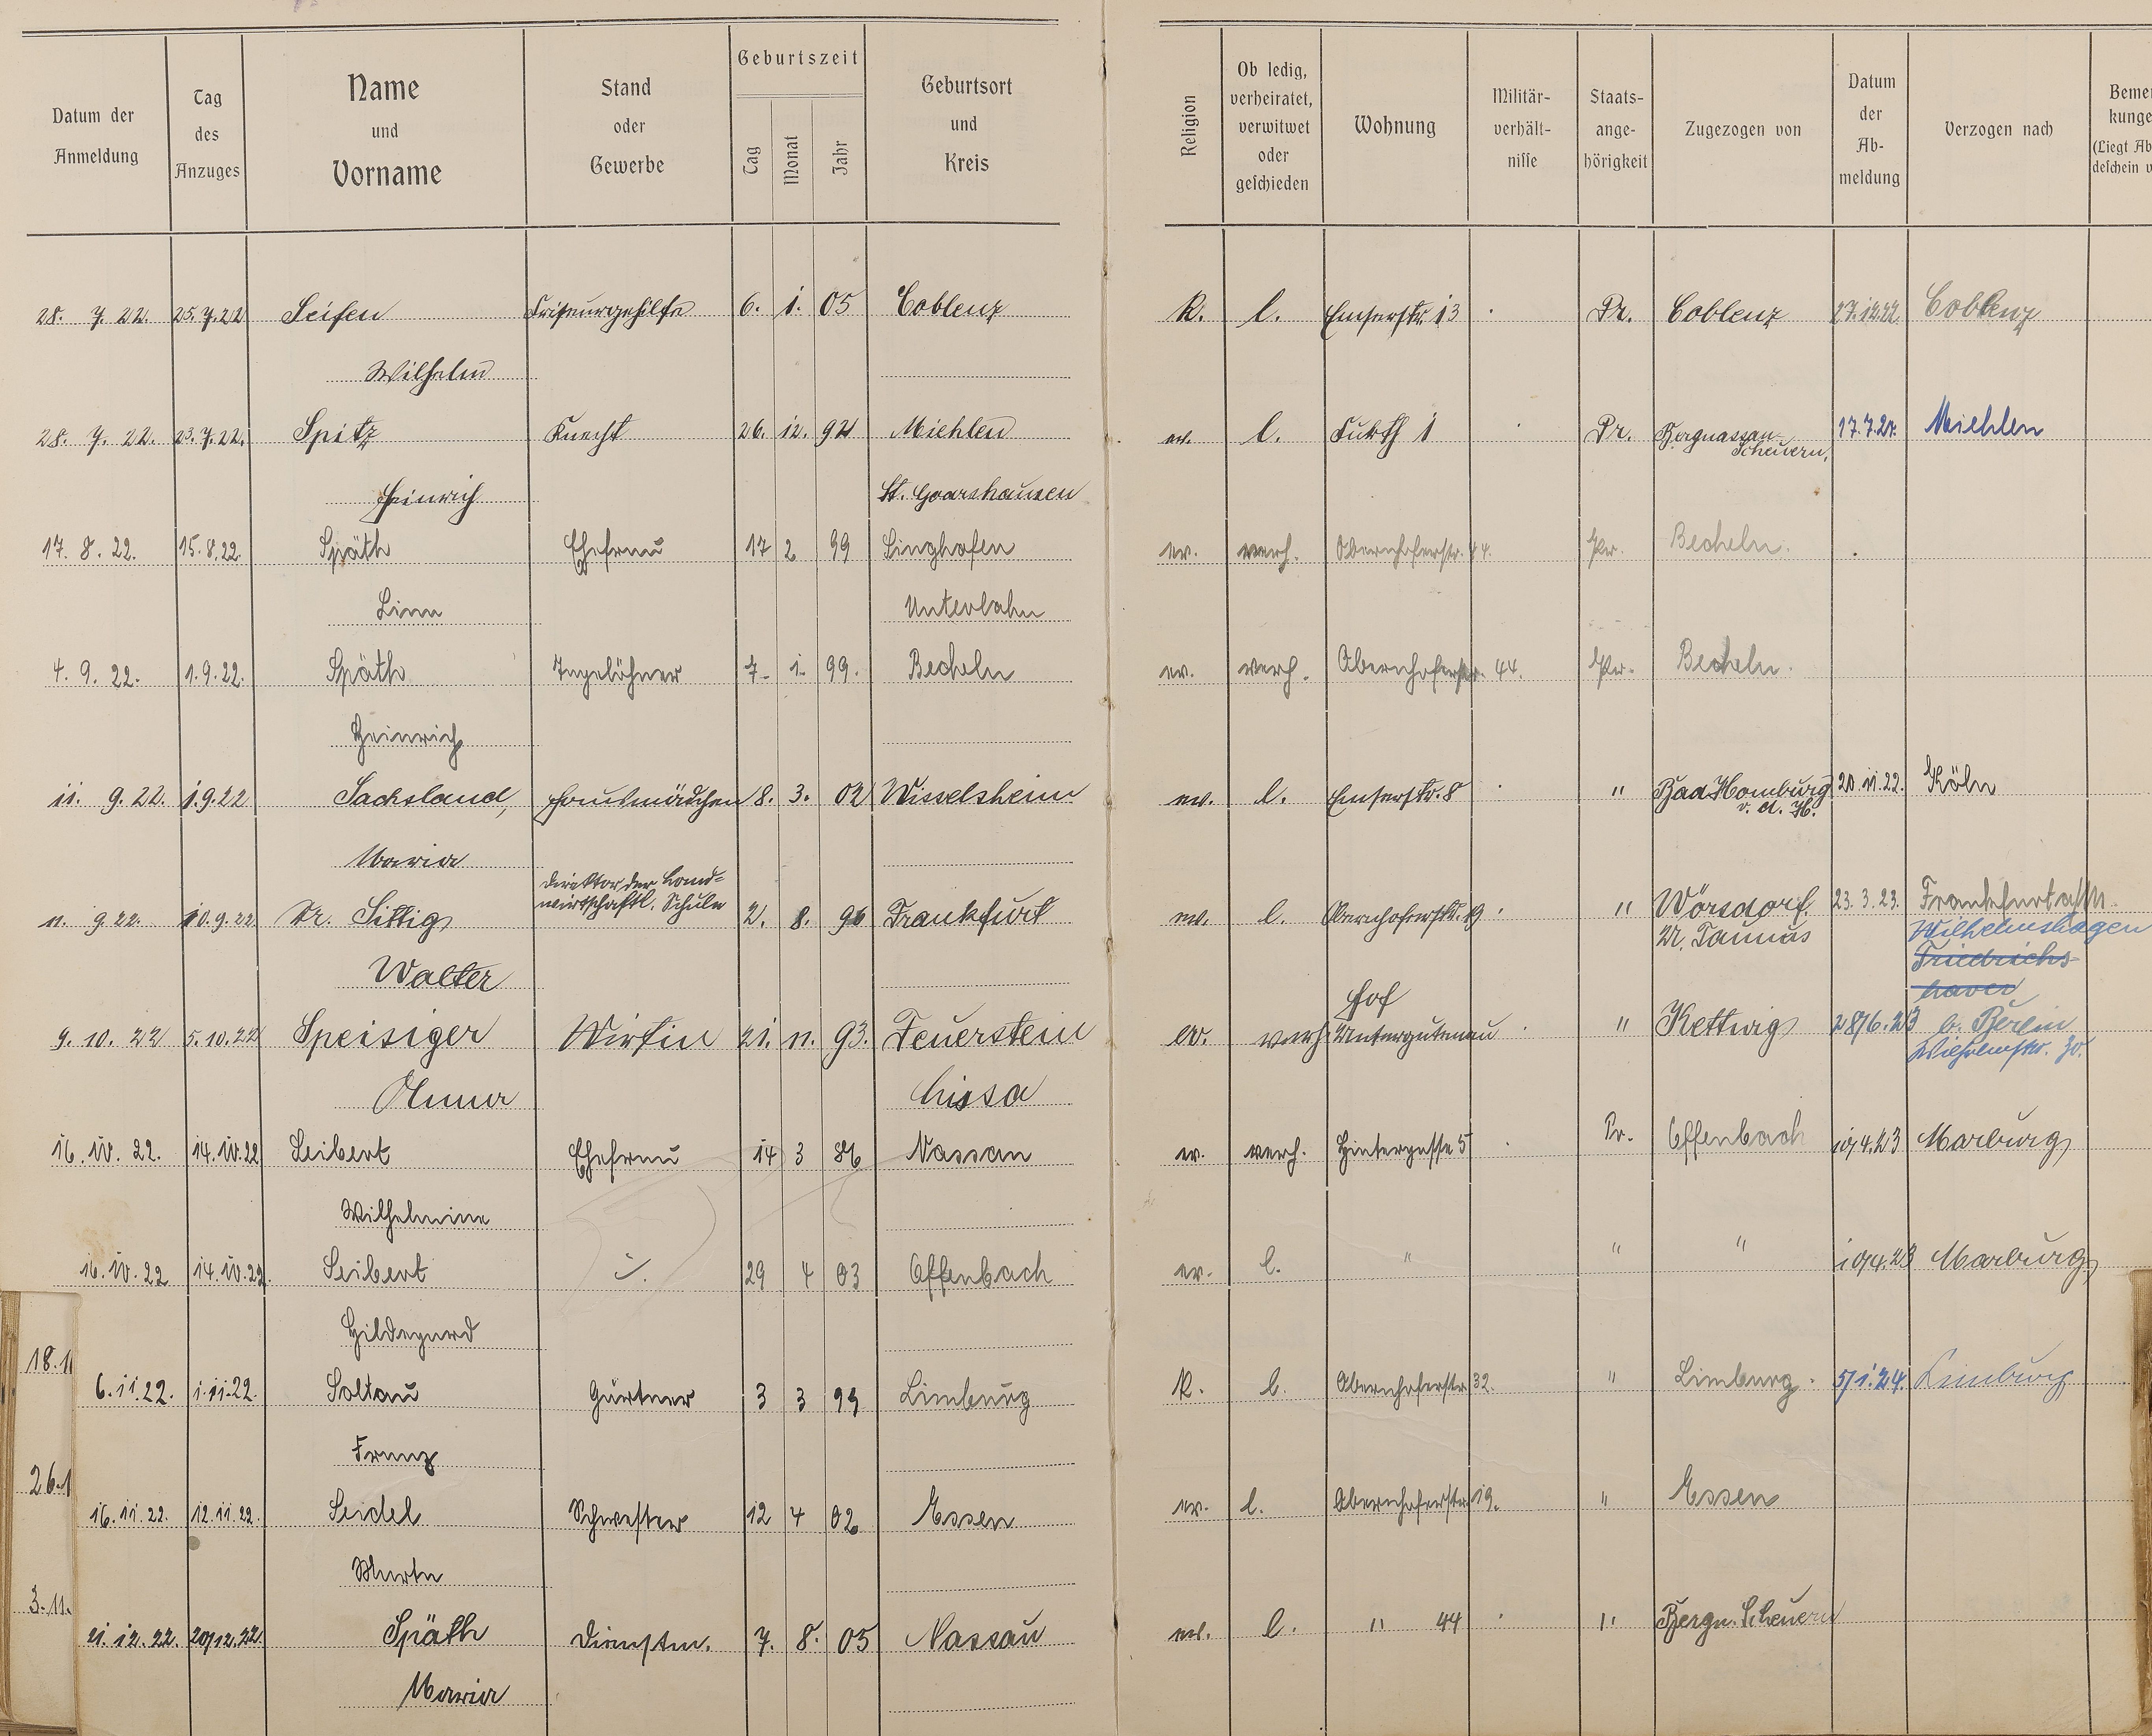 Datum der Anmeldung
Tag des Anzuges
Name und Vorname
Stand oder Gewerbe
Geburtszeit
Tag Monat Jahr
Geburtsort und Kreis
Religion
Ob ledig, verheiratet, verwitwet oder geschieden
Wohnung
Militär-verhält-nisse
Staats-ange-hörigkeit
Zugezogen von
Datum der Ab-meldung
Verzogen nach
(Liegt Ab
28. 7. 22. 25.7.22 Seifen Friseurgehilfe 6. 1. 05 Coblenz K. l. Emserstr. 13 Pr. Coblenz Coblenz
Wilhelm
28. 7. 22. 23.7.22. Spitz Knecht 26. 12. Miehlen ev. l. Pr. Bergnassau-Scheuern. Miehlen
Heinrich St. Goarshausen
17. 8. 22. 15.8.22. Späth Ehefrau 17 2 99 Singhofen ev. verh. Obernhoferstr. 44. Pr. Becheln.
Lina Unterlahn
4. 9. 22. 1.9.22. Späth Tagelöhner 7. 1. 99. Becheln ev. verh. Obernhoferstr. 44. Pr. Becheln.
Heinrich
11. 9. 22. 1.9.22 Sachsland, Hausmädchen 8. 3. 02 Wisselsheim ev. l. Emserstr. 8 " Bad Homburg v. d. H. 20.11.22. Köln
Maria
11. 9.22. 10.9.22 Dr. Sittig Direktor der Land=wirtschaftl. Schule 2. 8. 96 Frankfurt ev. l. Obernhoferstr. 19 " Wörsdorf. 23.3.23. Frankfurt a/M.
Walter Taunus Wilhelmshagen
Friedrichs-
haven
9. 10. 22 5.10.22 Speisiger Wirtin 21. 11. 93. Feuerstein ev. verh Hof Untergutenau " Kettwig 28/6.23 b. Berlin
Anna Lissa Wilhelmstr.
16. 10. 22. 14.10.22 Seibert Ehefrau 14 3 86 Nassau ev. verh. Hintergasse 5 Pr. Offenbach 10/4.23 Marburg
Wilhelmine
16.10.22 14.10.22. Seibert 29 4 03 Offenbach ev. l. " " " 10/4.23 Marburg
Hildegard
6.11.22. 1.11.22. Soltau Gärtner 3 3 99 Limburg K. l. Obernhoferstr. 32. " Limburg. 5/1.24. Limburg
Franz
16.11.22. 12.11.22. Seidel Schwester 12 4 02 Essen ev. l. Obernhoferstr. 19. " Essen
Marta
21. 12. 22. 20/12.22 Späth Dienstm. 7. 8. 05 Nassau ev. l. " 44 " Bergn. Scheuern
Maria
18.1
26.1
3.11.